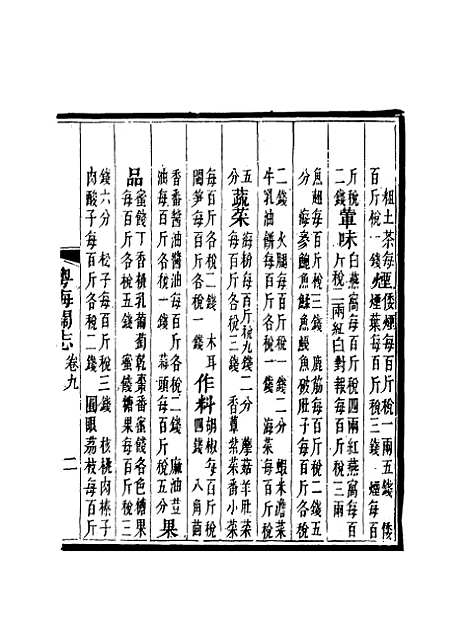 粗土茶每
百斤稅一錢
煙
倭煙每百斤稅一兩五錢 倭
煙葉每百斤稅三錢 煙每百
斤稅
二錢
葷味
白燕窩每百斤稅四兩紅燕窩每百
斤稅二兩紅白對報每百斤稅三兩
魚翅每百斤稅三錢 鹿筋每百斤稅二錢五
分 海參鮑魚鮭魚鰻魚破肚子每百斤各稅
二錢 火腿每百斤稅二分 蝦米澹菜
牛乳油餅每百斤稅二錢 海菜每百斤稅
五
分
蔬菜
海粉每百斤稅九錢二分 蘑菇羊肚
每百斤各稅二錢 香蕈紫菜番小菜
每百斤各稅二分 木耳
閩笋每百斤各稅一錢
作料
胡椒每百斤稅
四錢 八角茴
香番醬油醬油每百斤各稅二錢 麻油荳
油每百斤各稅一錢 蒜頭每百斤稅五分
果
品
蜜餞丁香桃乳葡萄乾棗番蜜餞各色糖果
每百斤各稅二錢 蜜餞糖果每百斤稅三
錢六分 松子每百斤稅三錢 核桃肉榛子
肉酸子每百斤各稅二錢 圓眼荔枝每百斤
粵海關志 卷九 二